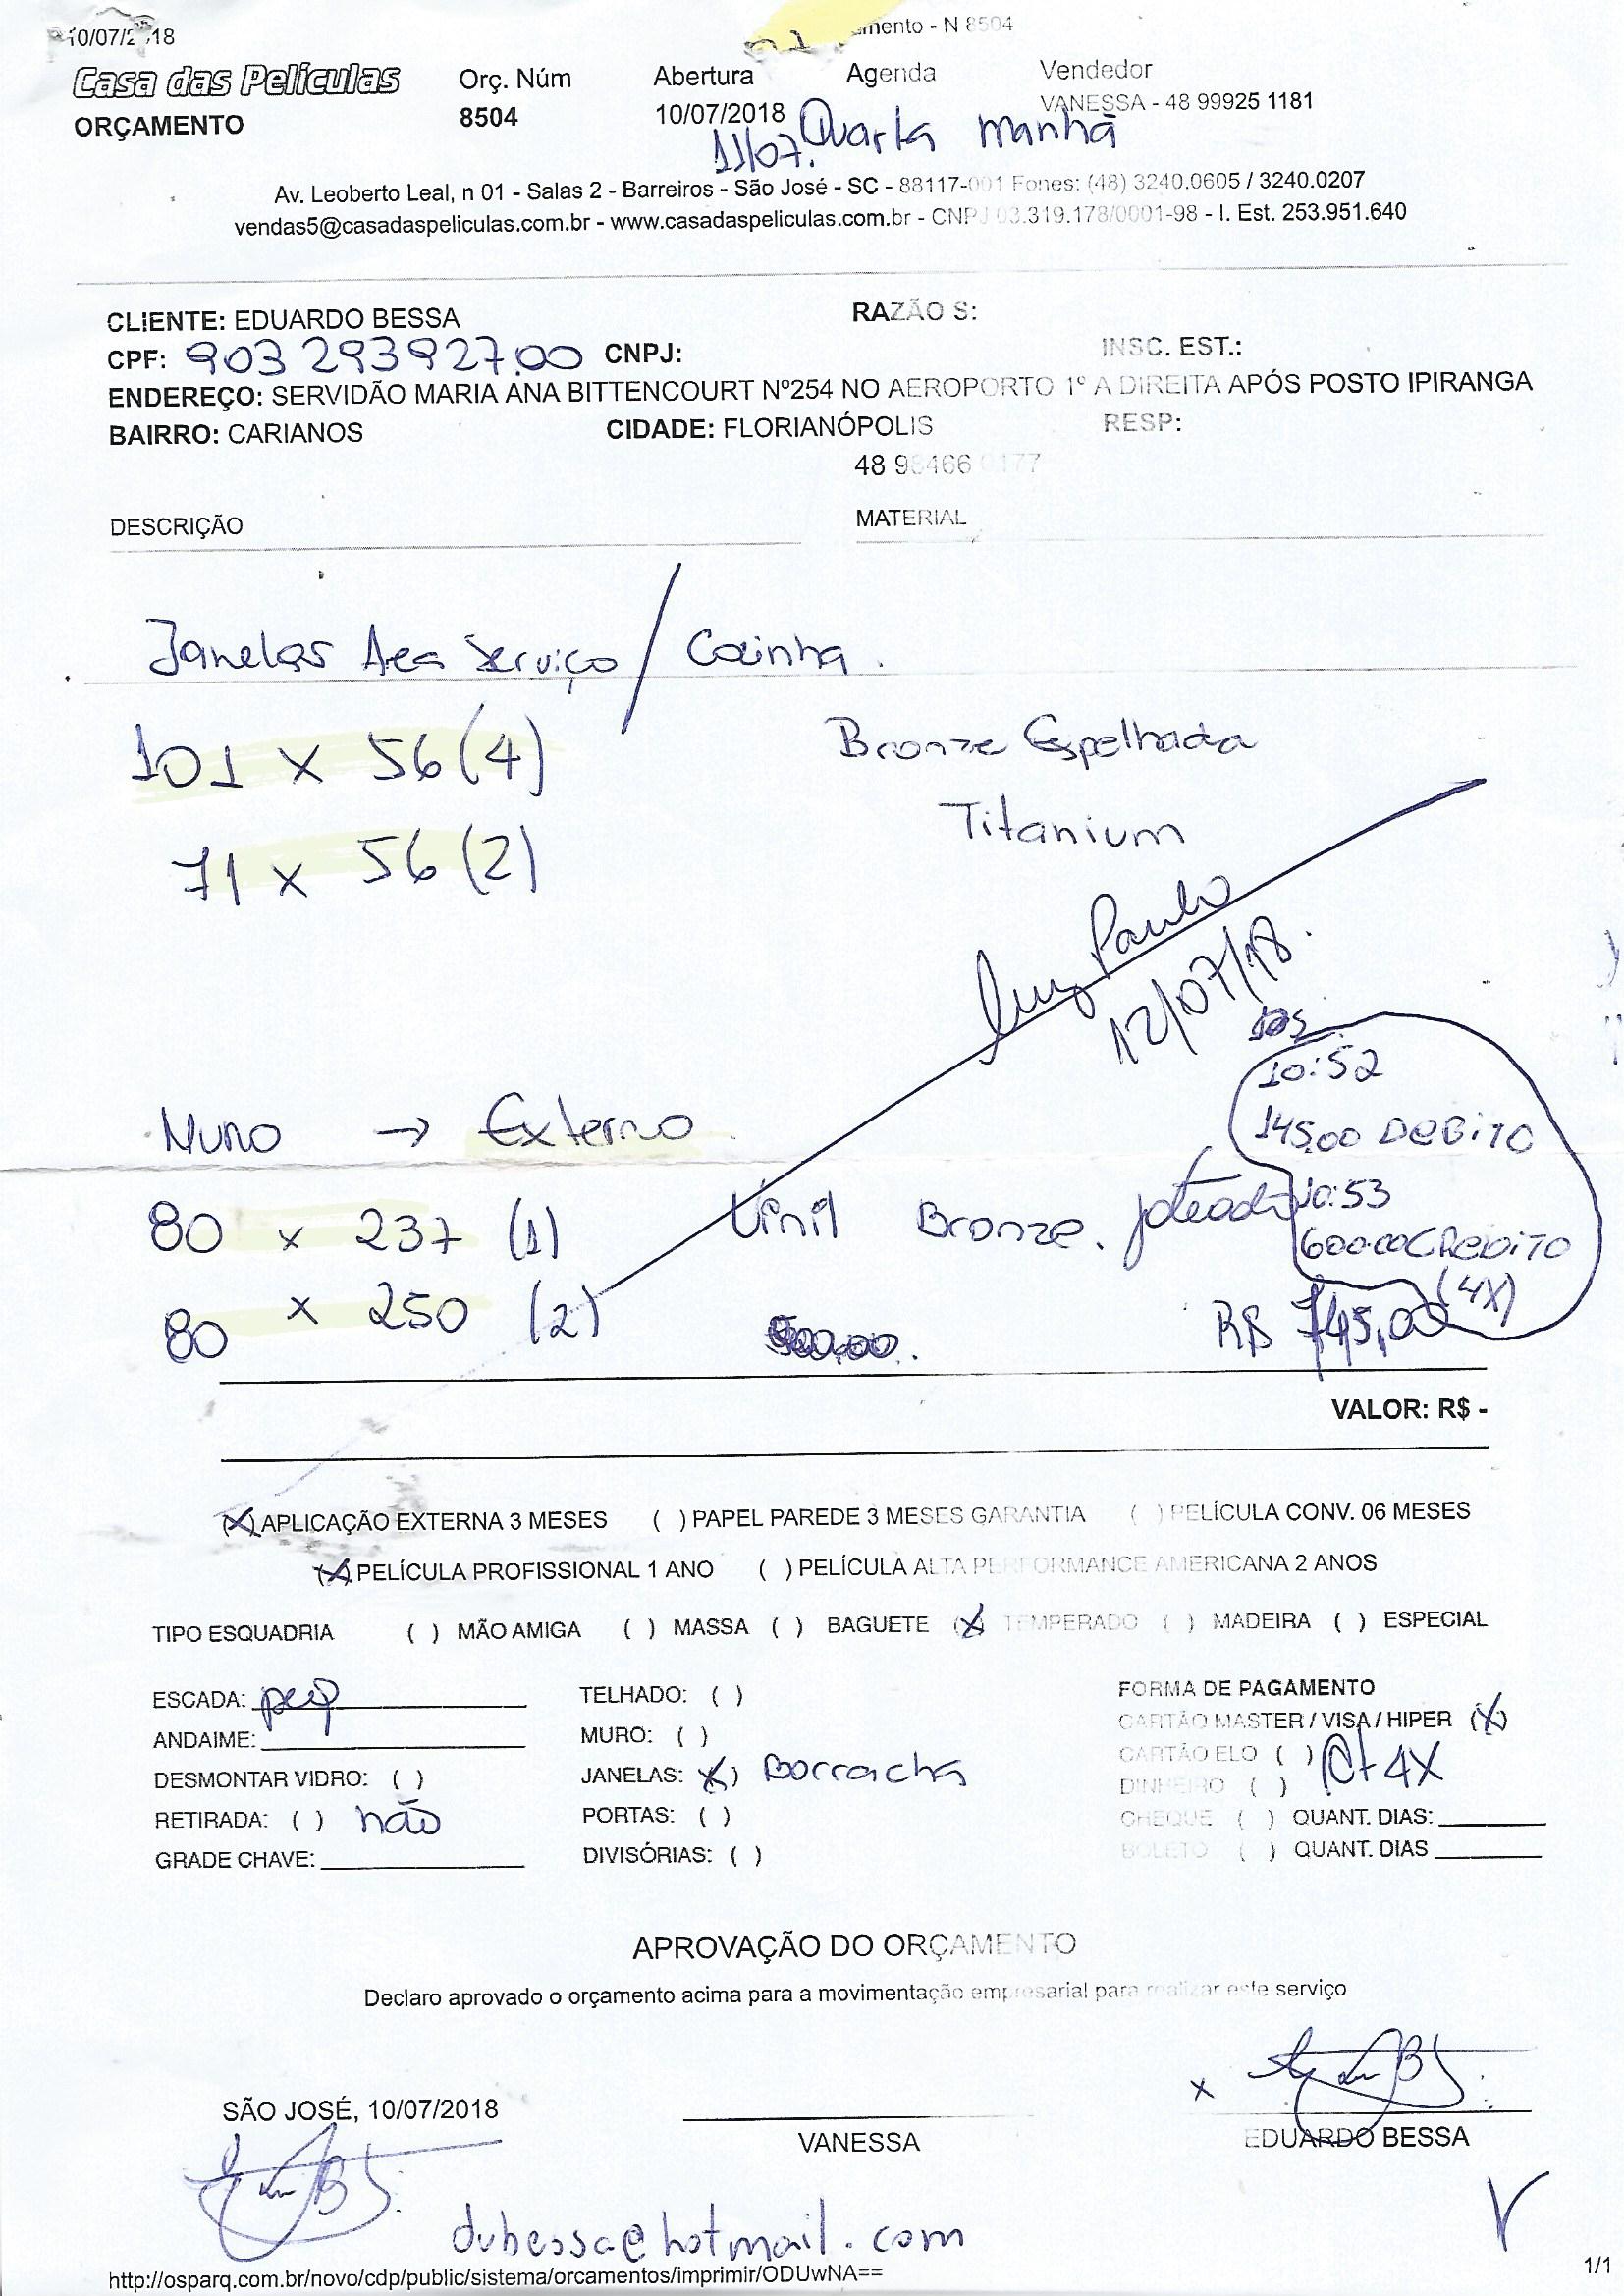 10/07/2018
mento - N 8504
Casa das Películas
ORÇAMENTO
Orç. Núm
8504
Abertura
10/07/2018
Agenda
Vendedor
VANESSA - 48 99925 1181
11/07. Quarta manhã
Av. Leoberto Leal, n 01 - Salas 2 - Barreiros - São José - SC - 88117-001 Fones: (48) 3240.0605 / 3240.0207
vendas5@casadaspeliculas.com.br - www.casadaspeliculas.com.br - CNPJ 03.319.178/0001-98 - I. Est. 253.951.640
CLIENTE: EDUARDO BESSA
RAZÃO S:
CPF: 903 293927.00 CNPJ:
INSC. EST.:
ENDEREÇO: SERVIDÃO MARIA ANA BITTENCOURT Nº254 NO AEROPORTO 1º A DIREITA APÓS POSTO IPIRANGA
BAIRRO: CARIANOS
CIDADE: FLORIANÓPOLIS
RESP:
48 98466 0177
DESCRIÇÃO
MATERIAL
Janelas Area Serviço / Cozinha.
101 x 56 (4)
Bronze Espelhada
71 x 56 (2)
Titanium
Paulo
12/07/18.
10:52
145,00 DEBITO
Muro → Externo
10:53
80 x 237 (1)
Vinil Bronze. jateado
600.00 CREDITO
(4X)
80 x 250 (2)
R$ 745,00
VALOR: R$ -
(X) APLICAÇÃO EXTERNA 3 MESES ( ) PAPEL PAREDE 3 MESES GARANTIA ( ) PELÍCULA CONV. 06 MESES
(X) PELÍCULA PROFISSIONAL 1 ANO ( ) PELÍCULA ALTA PERFORMANCE AMERICANA 2 ANOS
TIPO ESQUADRIA ( ) MÃO AMIGA ( ) MASSA ( ) BAGUETE (X) TEMPERADO ( ) MADEIRA ( ) ESPECIAL
ESCADA:
ANDAIME:
DESMONTAR VIDRO: ( )
RETIRADA: ( ) não
GRADE CHAVE:
TELHADO: ( )
MURO: ( )
JANELAS: (X) Borracha
PORTAS: ( )
DIVISÓRIAS: ( )
FORMA DE PAGAMENTO
CARTÃO MASTER / VISA / HIPER (X)
CARTÃO ELO ( )
4X
DINHEIRO ( )
CHEQUE ( ) QUANT. DIAS:
BOLETO ( ) QUANT. DIAS
APROVAÇÃO DO ORÇAMENTO
Declaro aprovado o orçamento acima para a movimentação empresarial para realizar este serviço
x
SÃO JOSÉ, 10/07/2018
VANESSA
EDUARDO BESSA
dubessa@hotmail.com
http://osparq.com.br/novo/cdp/public/sistema/orcamentos/imprimir/ODUwNA==
1/1